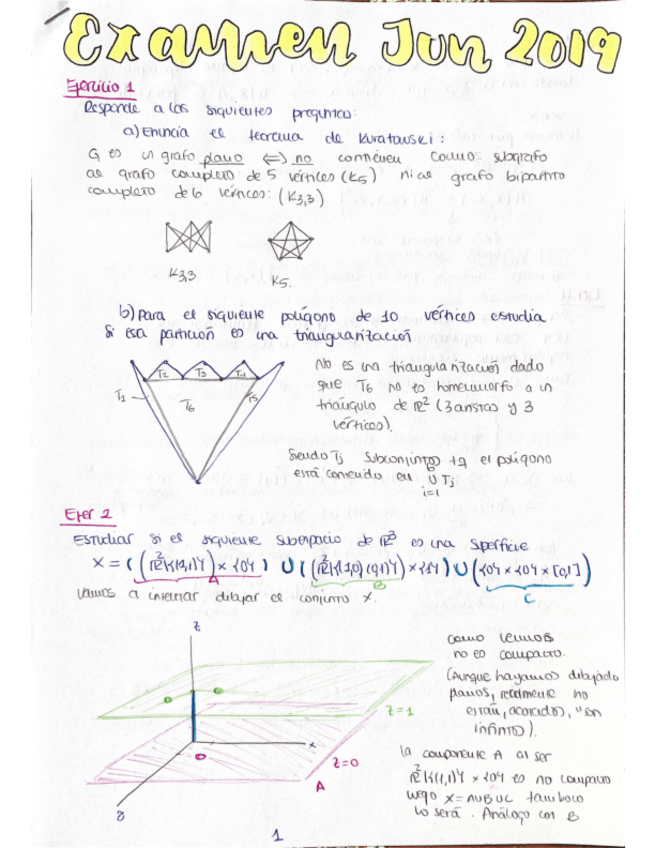 Examen Jun 2019
Ejercicio 1
Responde a las siguientes preguntas:
a) Enuncia el teorema de Kuratowski:
G es un grafo plano ⟺ no contiene como subgrafo
al grafo completo de 5 vértices (K5) ni al grafo bipartito
completo de 6 vértices: (K3,3)
K3,3
K5.
b) Para el siguiente polígono de 10 vértices estudia
si esa partición es una triangularización
T2 T3 T4
T1 T6 T5
No es una triangularización dado
que T6 no es homeomorfo a un
triángulo de ℝ² (3 aristas y 3
vértices).
Siendo Tj subconjuntos tq el polígono
está contenido en 6 ∪ i=1 Tj
Ejer 2
Estudiar si el siguiente subespacio de ℝ³ es una superficie
X = ((ℝ²\{(1,1)}) × {0}) ∪ ((ℝ²\{(1,0),(0,1)}) × {1}) ∪ ({0} × {0} × [0,1])
A
B
C
Vamos a intentar dibujar el conjunto X.
z
x
z=1
z=0
A
como vemos
no es compacto.
(Aunque hayamos dibujado
planos, realmente no
están, acotados, "son
infinitos).
La componente A al ser
ℝ²\{(1,1)} × {0} es no compacto
luego X = A∪B∪C tampoco
lo será. Análogo con B
1